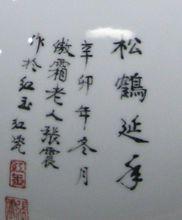 松鶴延年
辛卯年冬月
傲霜老人張震
作於紅玉紅瓷